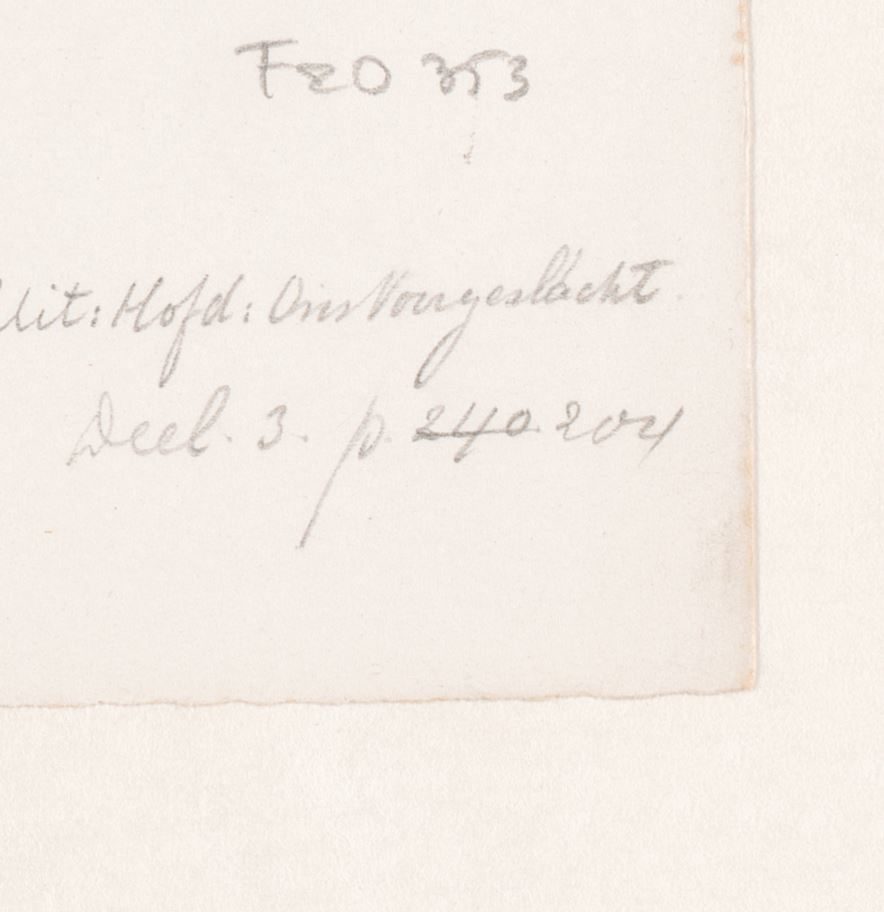 FEO 353
Uit: Hofd: Ons Voorgeslacht.
Deel. 3. p. 240. 204